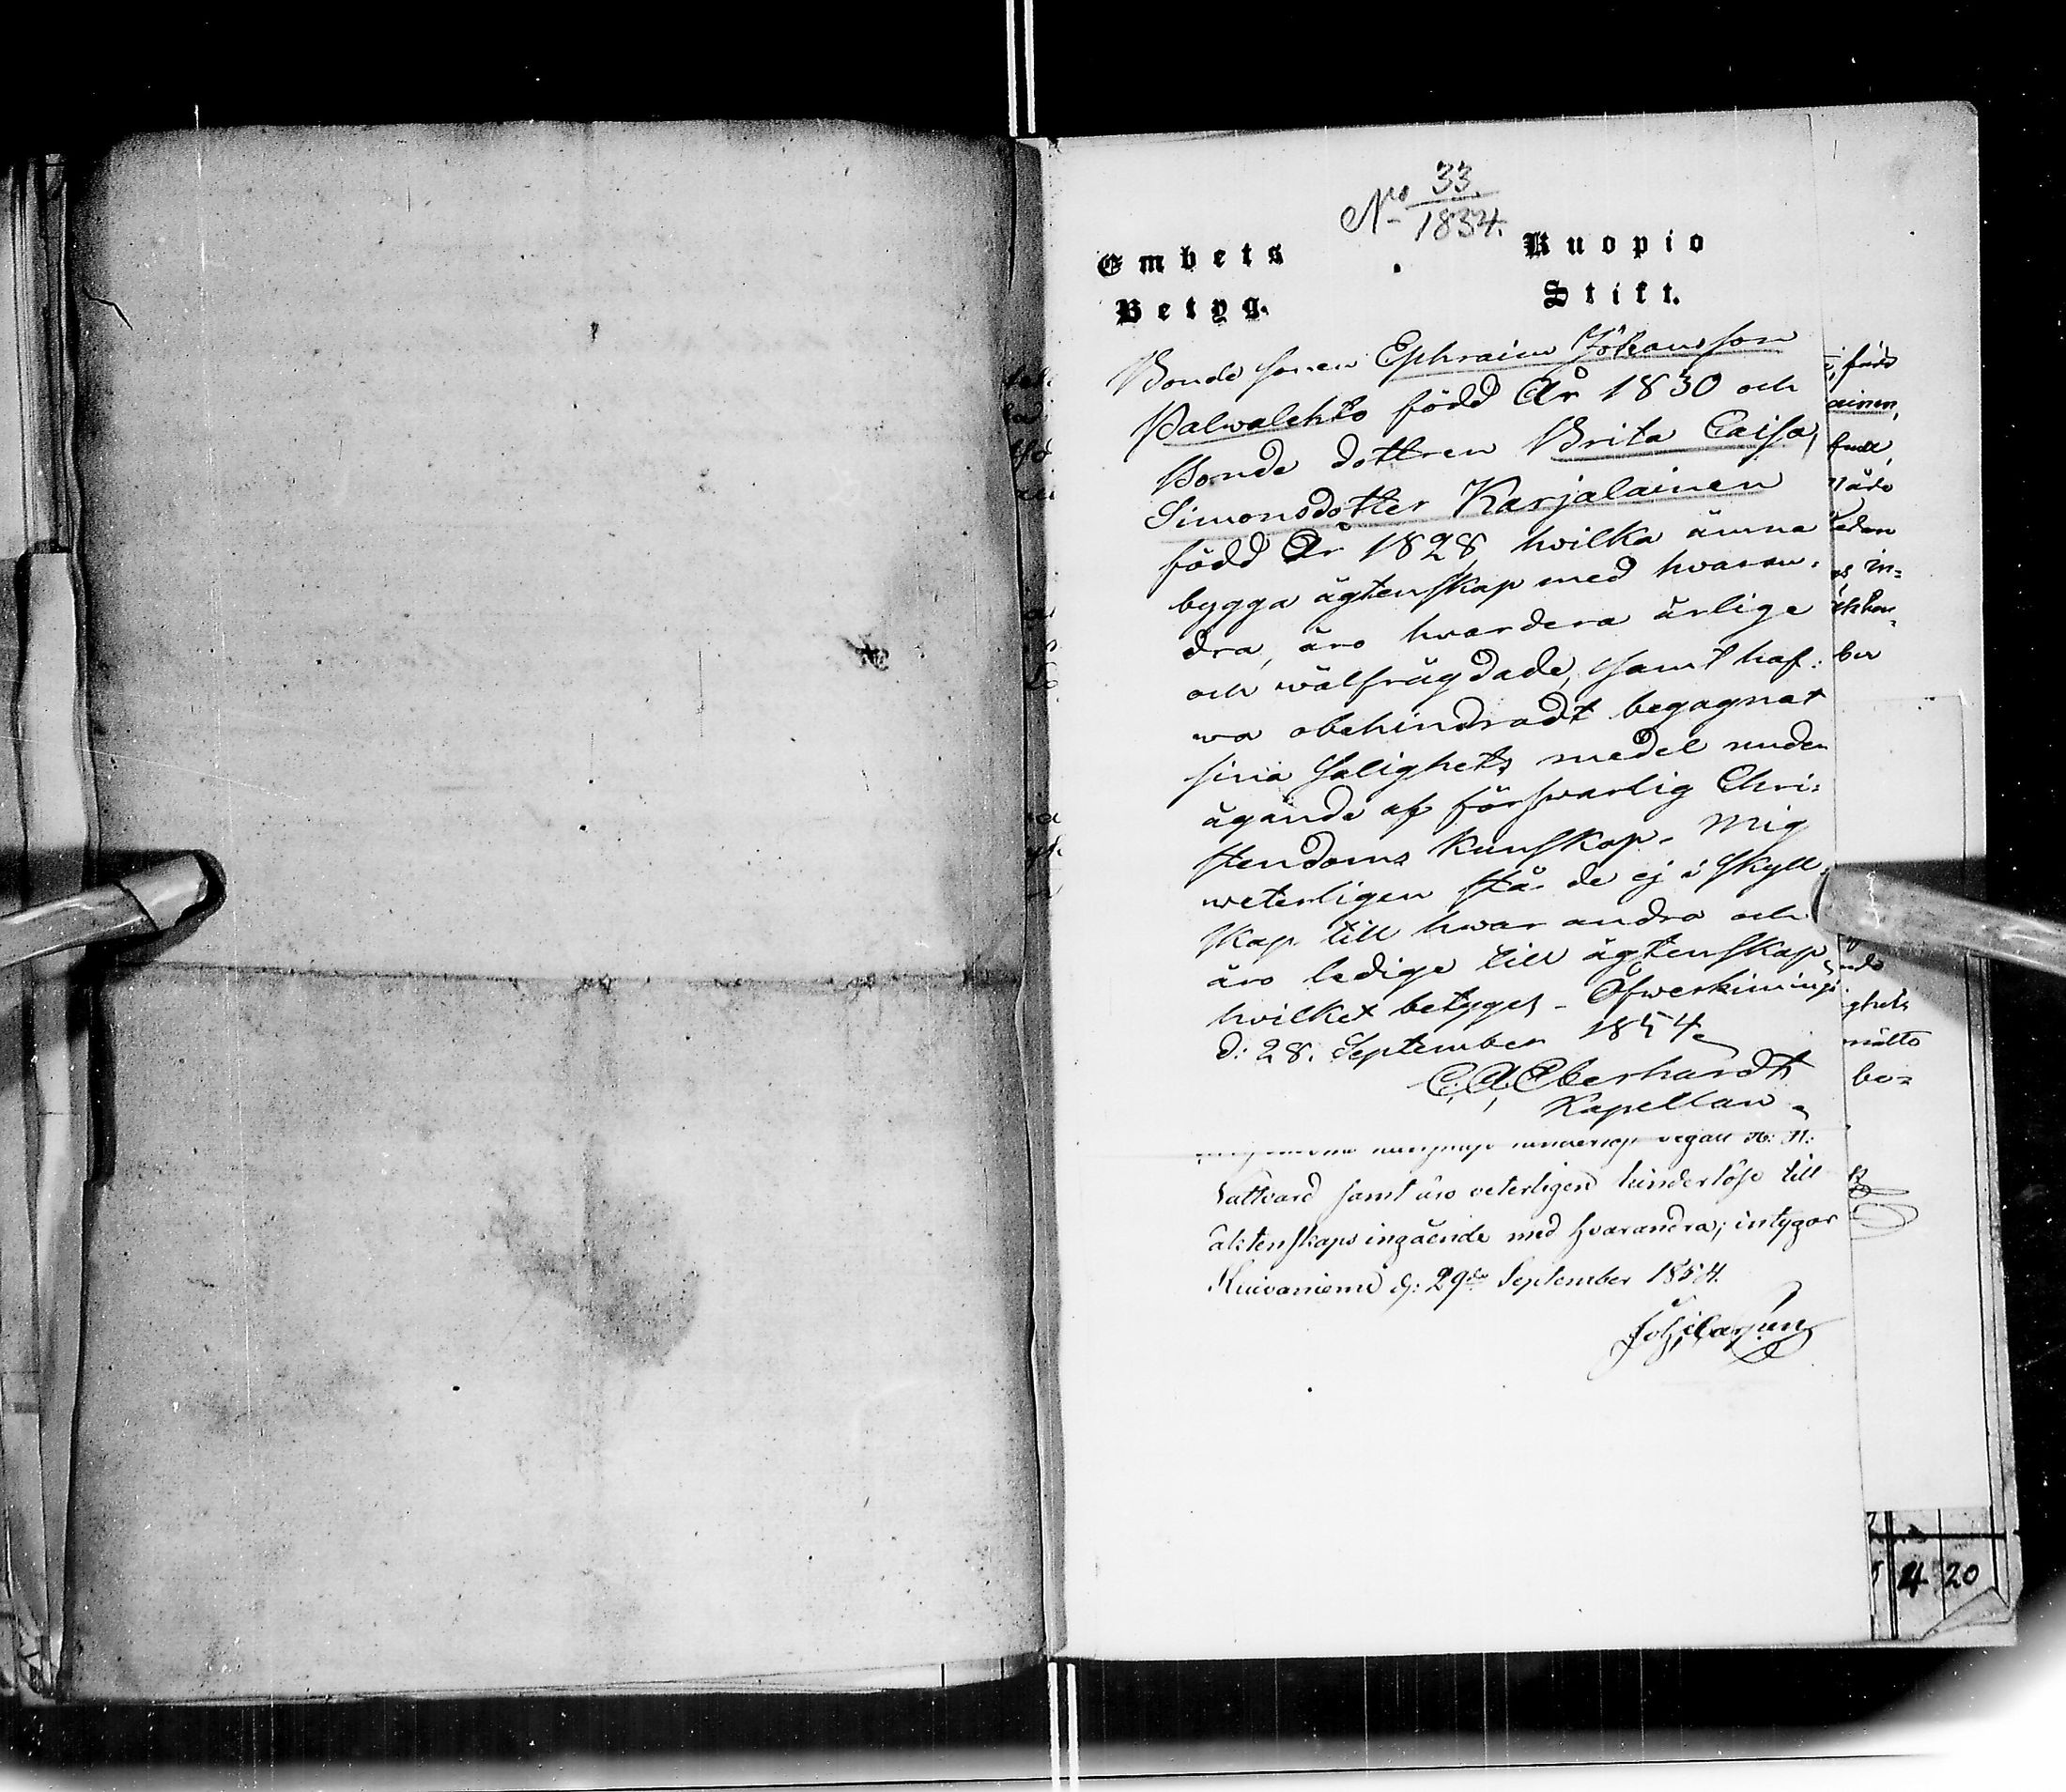 No 33
1854.
Embets
Betyg.
Kuopio
Stift.
Bonde sonen Ephraim Johansson
Palwalehto född År 1830 och
Bonde dottren Brita Caisa,
Simonsdotter Karjalainen
född År 1828, hvilka ämna
bygga ägtenskap med hvaran-
dra, äro hvardera ärlige
och wälfrägdade, samt haf:
wa obehindradt begagnat
sina salighets medel under
ägande af förswarlig Chri:
stendoms kunskap. Mig
weterligen stå de ej i skyll
skap till hwar andra och
äro ledige till ägtenskap,
hvilket betyges - Öfwerkimingi
d: 28. September 1854.
C. A. Eberhardt
Kapellan.
Nattvard samt äro veterligen hinderlöse till
äktenskaps ingående med hvarandra; intygar
Kuivaniemi d: 29de September 1854.
född
ainen,
in=
ber
ghets
mätto
be=
4 20